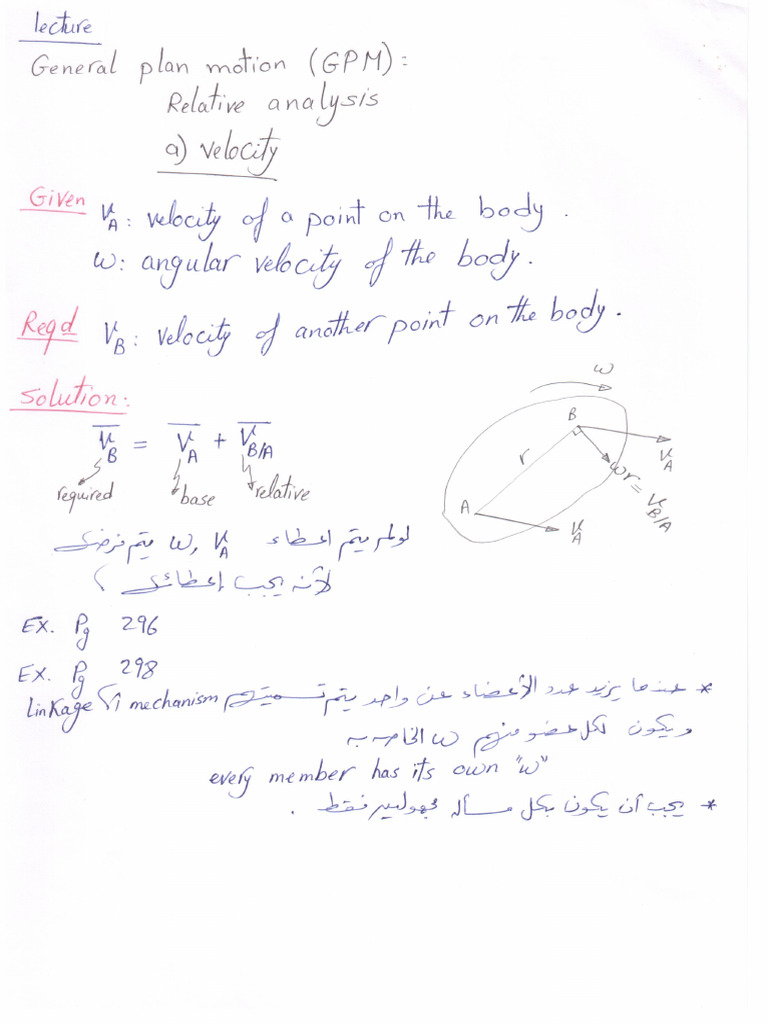 lecture
General plan motion (GPM):
Relative analysis
a) velocity
Given V_A: velocity of a point on the body.
ω: angular velocity of the body.
Reqd V_B: velocity of another point on the body.
Solution:
V̅_B = V̅_A + V̅_B/A
required base relative
ω
B
r
V_A
ωr = V_B/A
A
V_A
لو لم يتم إعطاء ω, V_A يتم فرضك
لأنه يجب إعطائك
EX. Pg 296
EX. Pg 298
* عندما يزيد عدد الأعضاء عن واحد يتم تسميتهم mechanism أو linkage
ويكون لكل عضو منهم ω الخاصه به
every member has its own "ω"
* يجب أن يكون بكل مسأله مجهولين فقط .